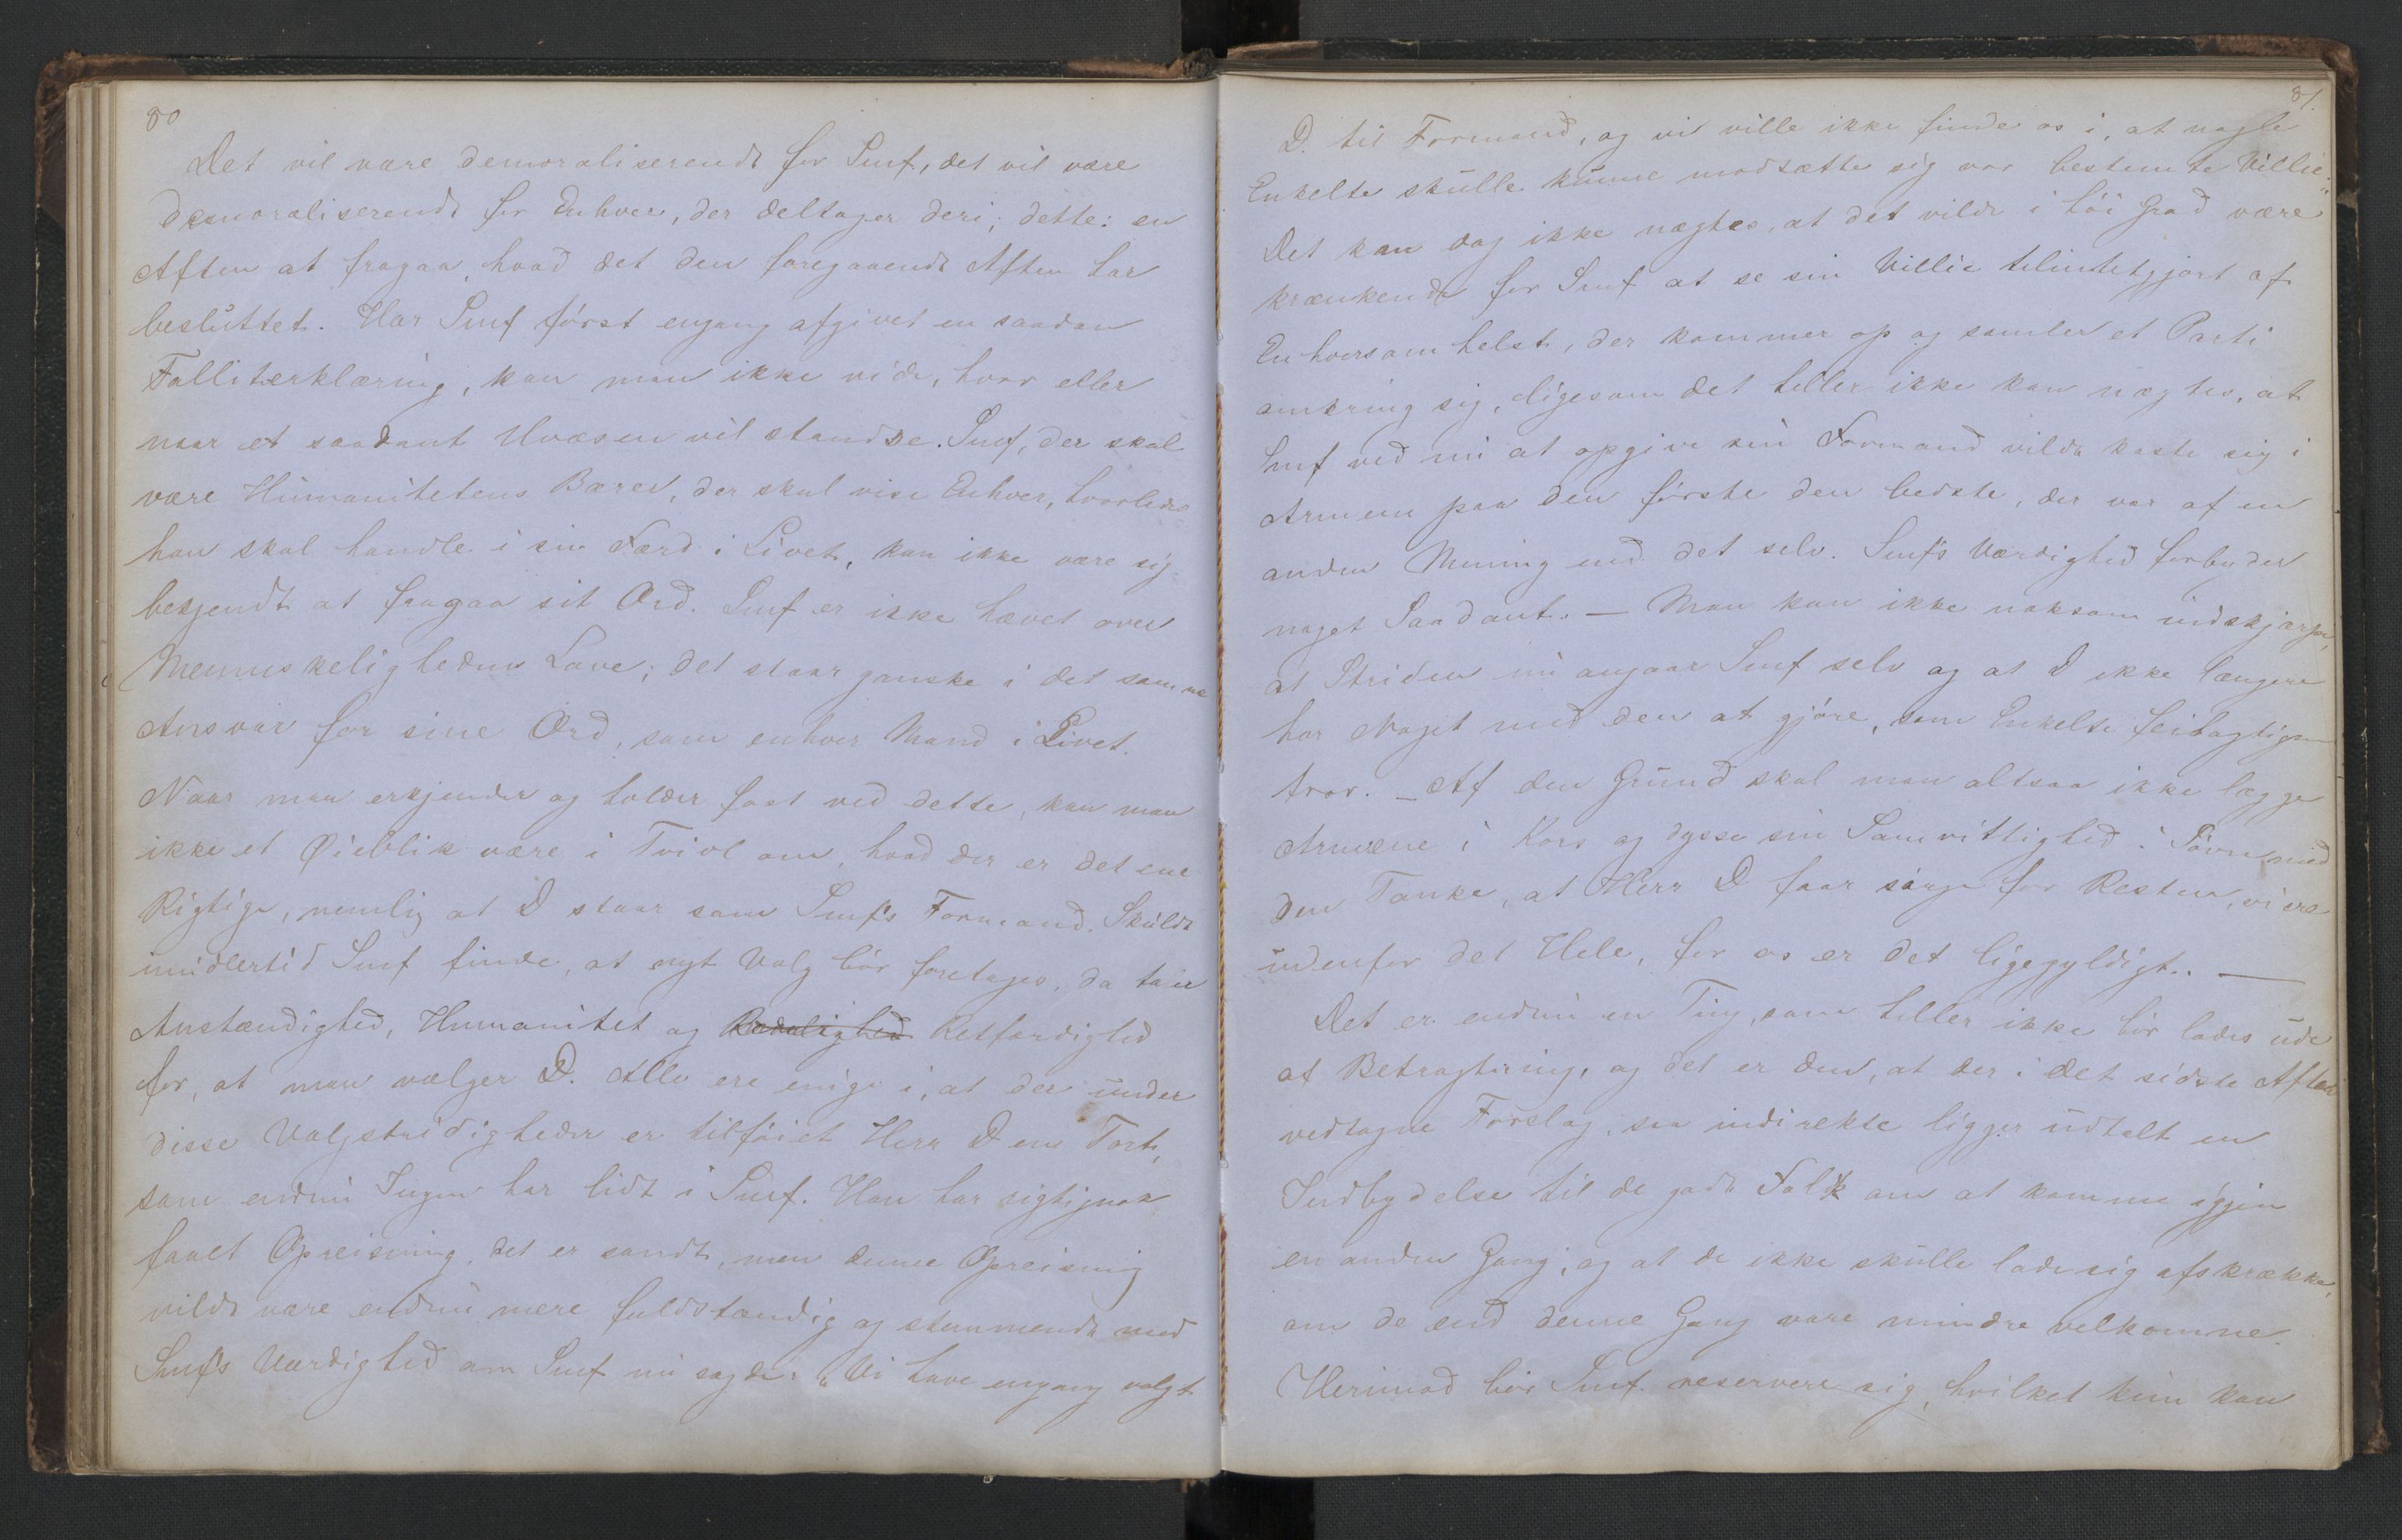 80
Det vil være demoraliserende for Smf, det vil være
demoraliserende for Enhver, der deltager deri; dette: en
Aften at fragaa, hvad det den foregaaende Aften har
besluttet. Har Smf først engang afgivet en saadan
Falliterklæring, kan man ikke vide, hvor eller
naar et saadant Uvæsen vil standse. Smf, der skal
være Humanitetens Bærer, der skal vise Enhver, hvorledes
han skal handle i sin Færd i Livet, kan ikke være sig
bekjendt at fragaa sit Ord. Smf er ikke hævet over
Menneskelighedens Love; det staar ganske i det samme
Ansvar for sine Ord, som enhver Mand i Livet.
Naar man erkjender og holder fast ved dette, kan man
ikke et Øieblik være i Tvivl om, hvad der er det ene
Rigtige, nemlig at D staar som Smf's Formand. Skulde
imidlertid Smf finde, at nyt Valg bör foretages, da taler
Anstændighed, Humanitet og Retfærdighed
for, at man vælger D. Alle ere enige i, at der under
disse Valgstridigheder er tilföiet Herr D en Tort,
som endnu Ingen har lidt i Smf. Han har rigtignok
faaet Opreisning, det er sandt, men denne Opreisning
vilde være endnu mere fuldstændig og stemmende med
Smf's Værdighed om Smf nu sagde: "Vi have engang valgt
81.
D. til Formand, og vi ville ikke finde os i, at nogle
Enkelte skulle kunne modsætte sig vor bestemte Villie."
Det kan dog ikke nægtes, at det vilde i höi Grad være
krænkende for Smf at se sin Villie tilintetgjort af
Enhversomhelst, der kommer op og samler et Parti
omkring sig, ligesom det heller ikke kan nægtes, at
Smf ved nu at opgive sin Formand vilde kaste sig i
Armene paa den förste den bedste, der var af en
anden Mening end det selv. Smf's Værdighed forbyder
noget Saadant. — Man kan ikke noksom indskjærpe,
at Striden nu angaar Smf selv og at D ikke længere
har Noget med den at gjöre, som Enkelte feilagtigen
tror. — Af den Grund skal man altsaa ikke lægge
Armene i Kors og dysse sin Samvittighed i Sövn med
den Tanke, at Herr D faar sörge for Resten, vi ere
udenfor det Hele, for os er det ligegyldigt. —
Det er endnu en Ting, som heller ikke bör lades ude
af Betragtning, og det er den, at der i det sidste Aften
vedtagne Forslag, saa indirekte ligger udtalt en
Indbydelse til de gode Folk om at komme igjen
en anden Gang, og at de ikke skulle lade sig afskrække,
om de end denne Gang vare mindre velkomne.
Herimod bör Smf. reservere sig, hvilket kun kan